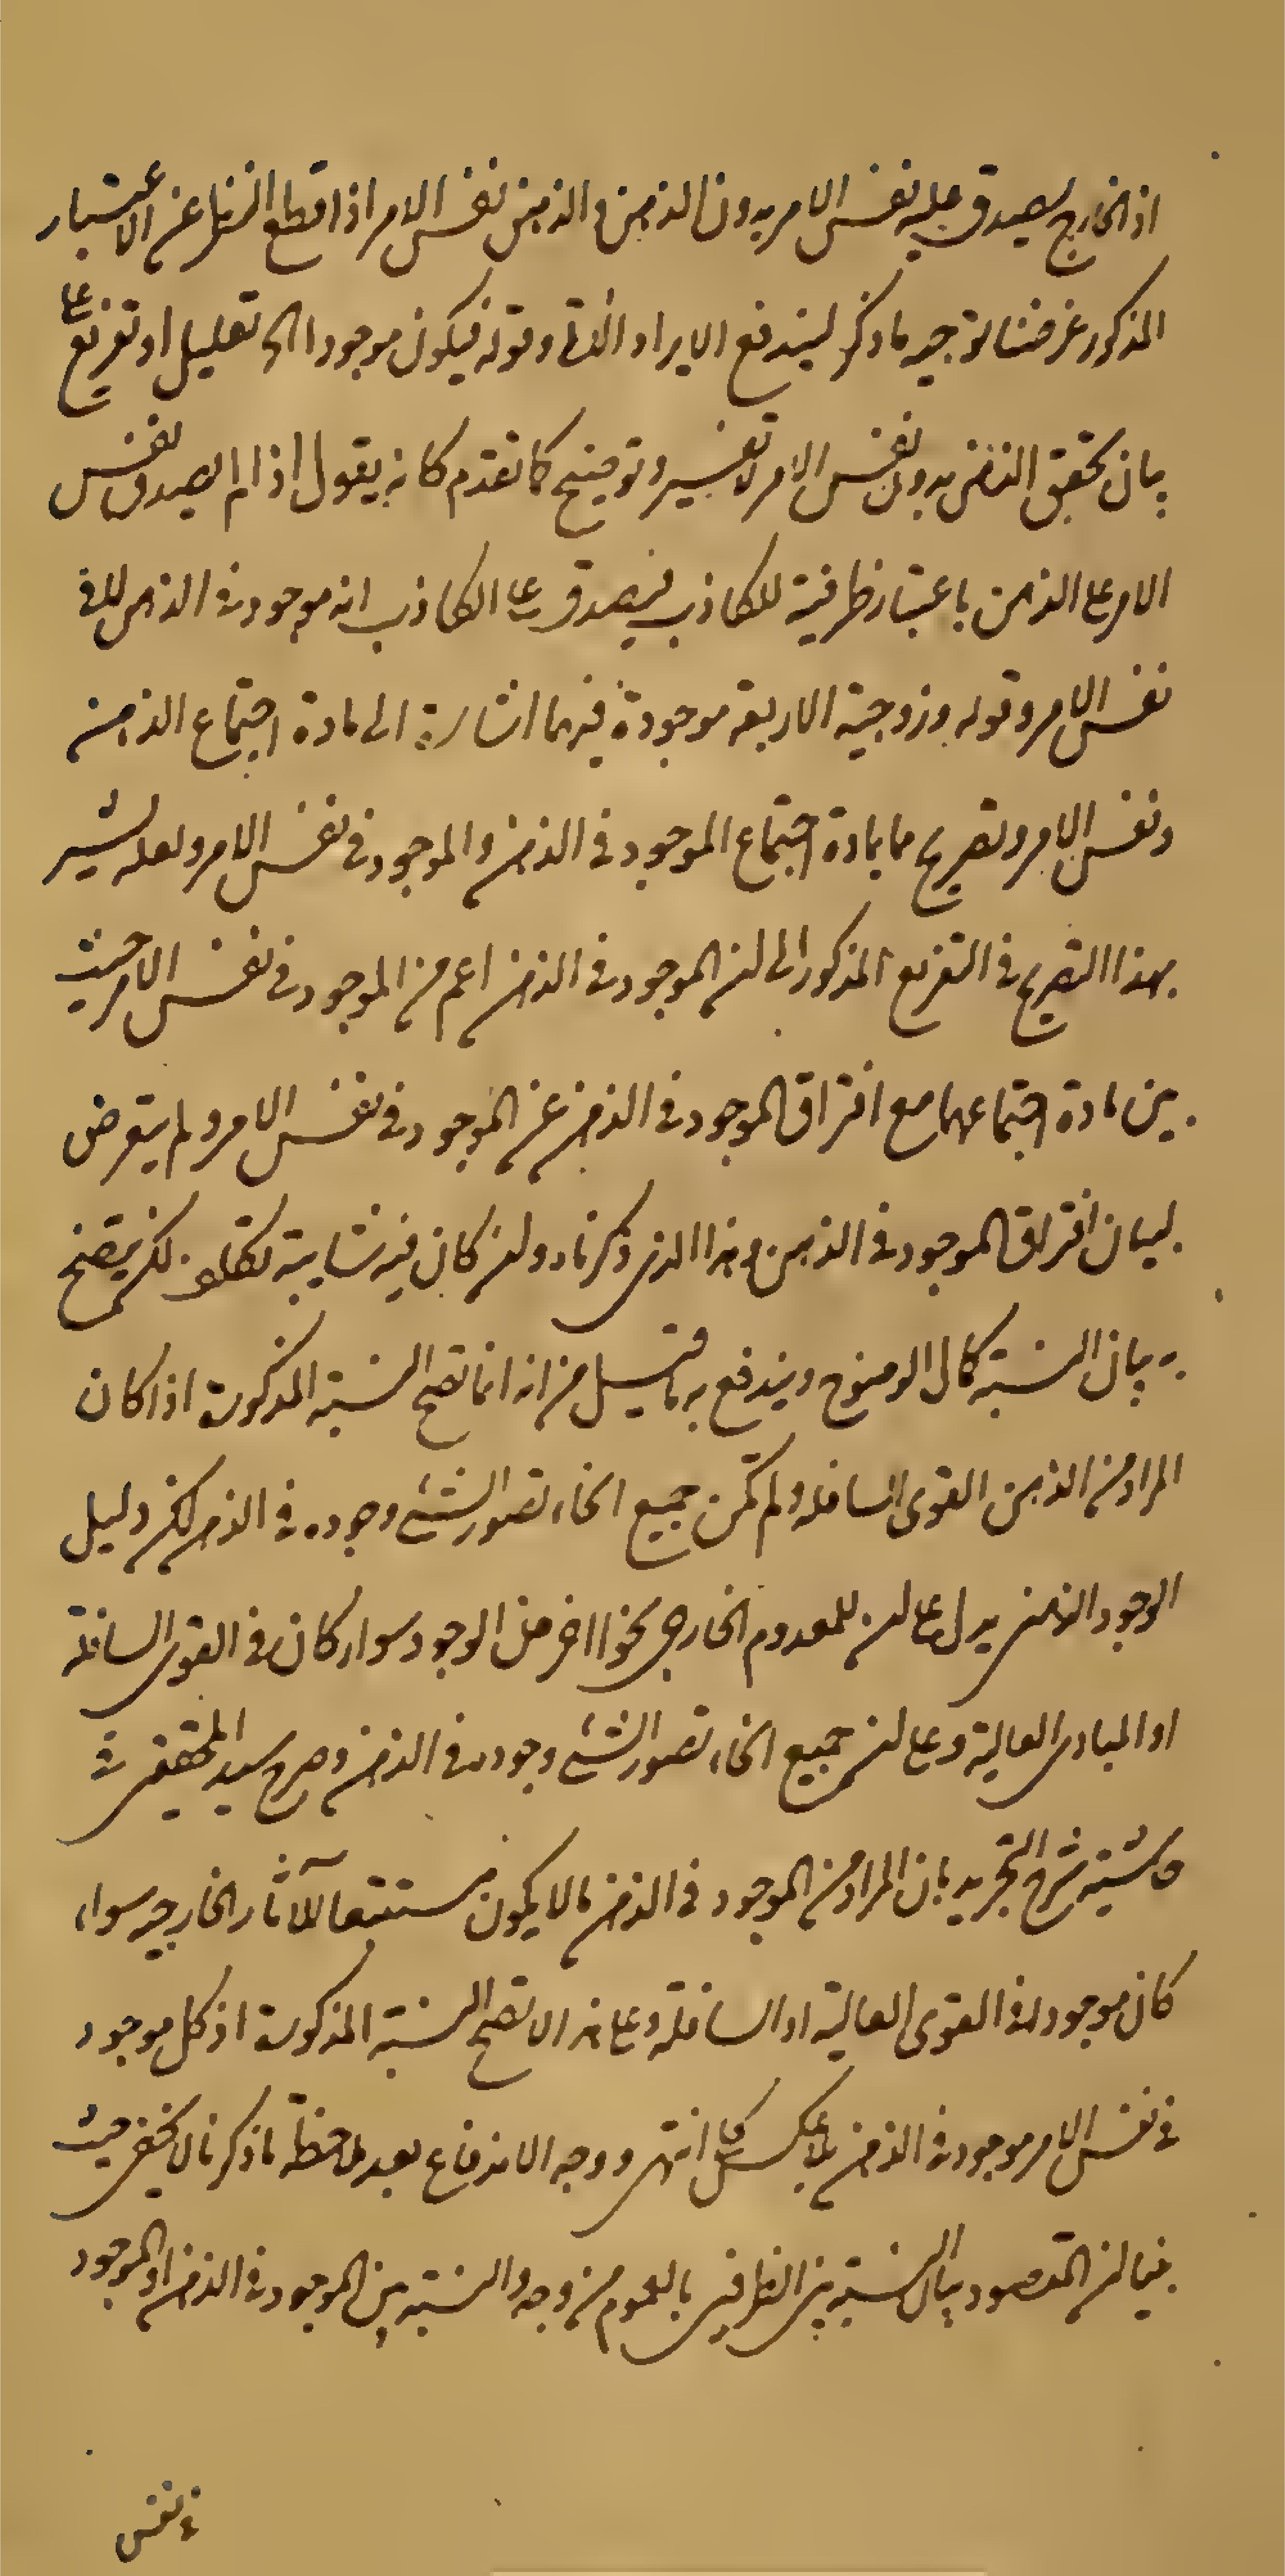 اذ الخارج يصدق عليه نفس الامر بدون الذهن والذهن نفس الامر اذا قطع النظر عن الاعتبار
المذكور غرضنا توجيه ما ذكر ليندفع الايراد الثاني وقوله فيكون موجودا الى تعليل او تفريع على
بيان تحقق الذهن بدون نفس الامر تفسير وتوضيح كما تقدم كانه يقول اذا لم يصدق نفس
الامر على الذهن باعتبار ظرفية للكاذب فيصدق على الكاذب انه موجود في الذهن لا في
نفس الامر وقوله وزوجية الاربعة موجودة فيهما اشارة الى مادة اجتماع الذهن
ونفس الامر وتصريح ما بمادة اجتماع الموجود في الذهن والموجود في نفس الامر ولعله يشير
بهذا التصريح في التفريع المذكور الى ان الموجود في الذهن اعم من الموجود في نفس الامر حيث
بين مادة اجتماعهما مع افتراق الموجود في الذهن عن الموجود في نفس الامر ولم يتعرض
لبيان افتراق الموجود في الذهن وهذا الذي ذكرناه وان كان فيه شايبة تكلف لكن يتضح
به بيان النسبة كمال الوضوح ويندفع به ما قيل من انه انما تصح النسبة المذكورة اذا كان
المراد من الذهن القوى السافلة ولم تكن جميع انحاء تصور الشيء وجوده في الذهن لكن دليل
الوجود الذهني يدل على ان للمعدوم الخارجي نحوا اخر من الوجود سواء كان في القوى السافلة
او المبادى العالية وعلى ان جميع انحاء تصور الشيء وجوده في الذهن وصرح سيد المحققين في
حاشية شرح التجريد بان المراد من الموجود في الذهن ما لا يكون مستتبعا للآثار الخارجية سواء
كان موجودا في القوى العالية او السافلة وعلى هذا لا تصح النسبة المذكورة اذ كل موجود
في نفس الامر موجود في الذهن بلا عكس كلي انتهى ووجه الاندفاع بعد ملاحظة ما ذكرنا لا يخفى حيث
بينا ان المقصود بيان النسبة بين الظرفين بالعموم من وجه والنسبة بين الموجود في الذهن والموجود
في نفس